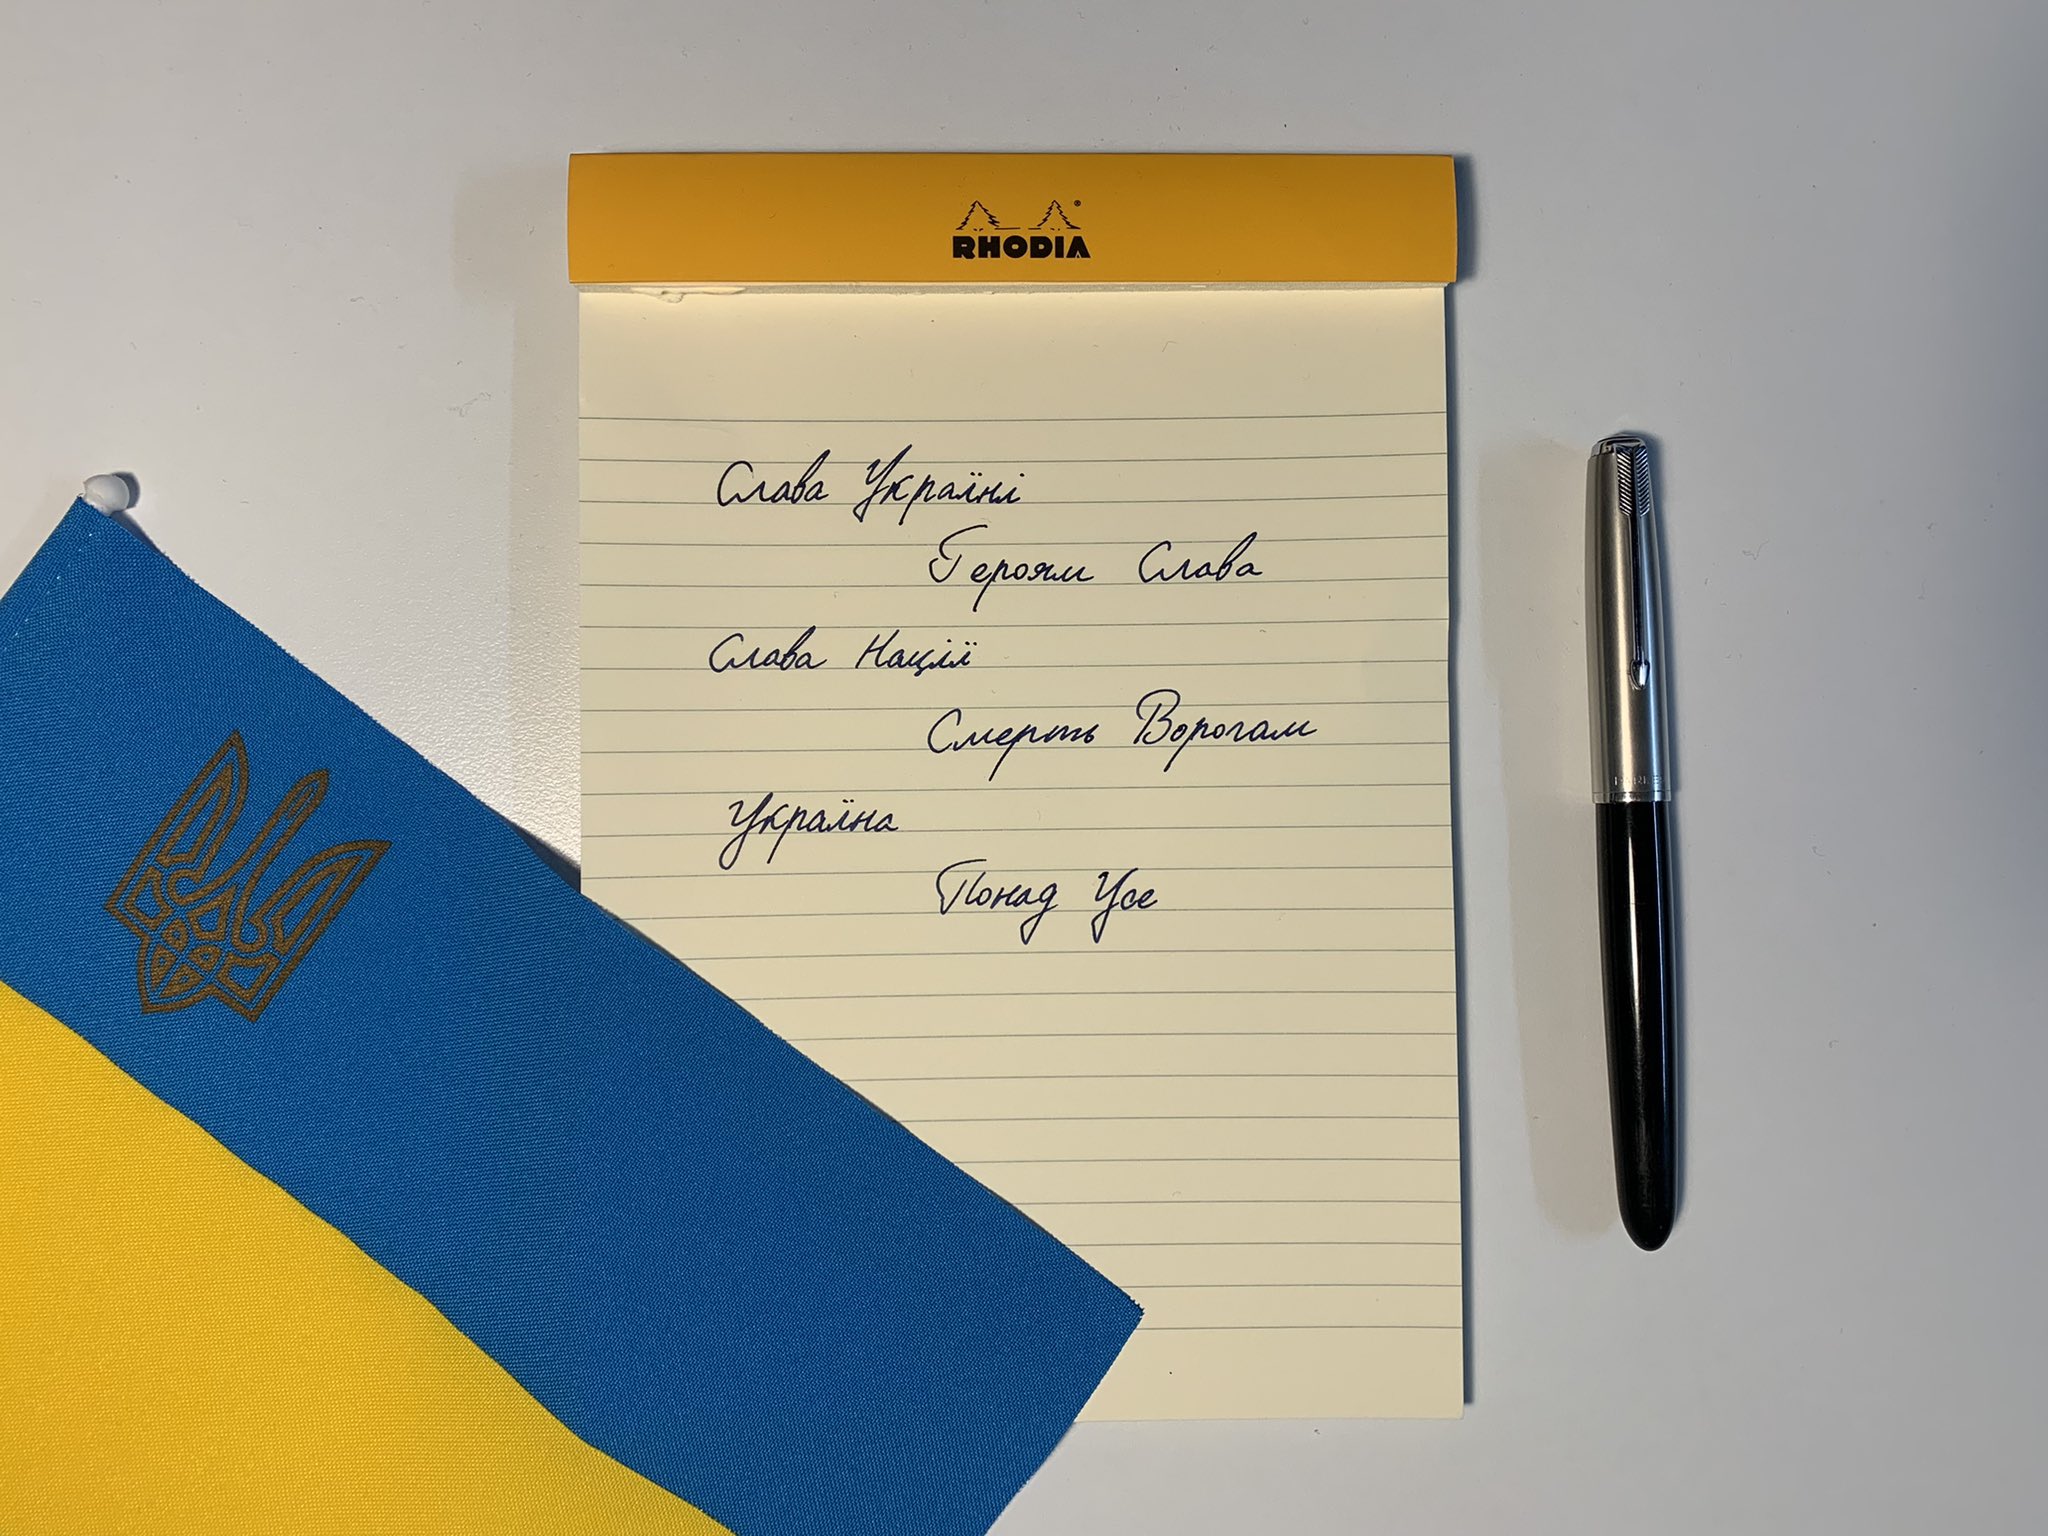 RHODIA
Слава Україні
Героям Слава
Слава Нації
Смерть Ворогам
Україна
Понад Усе